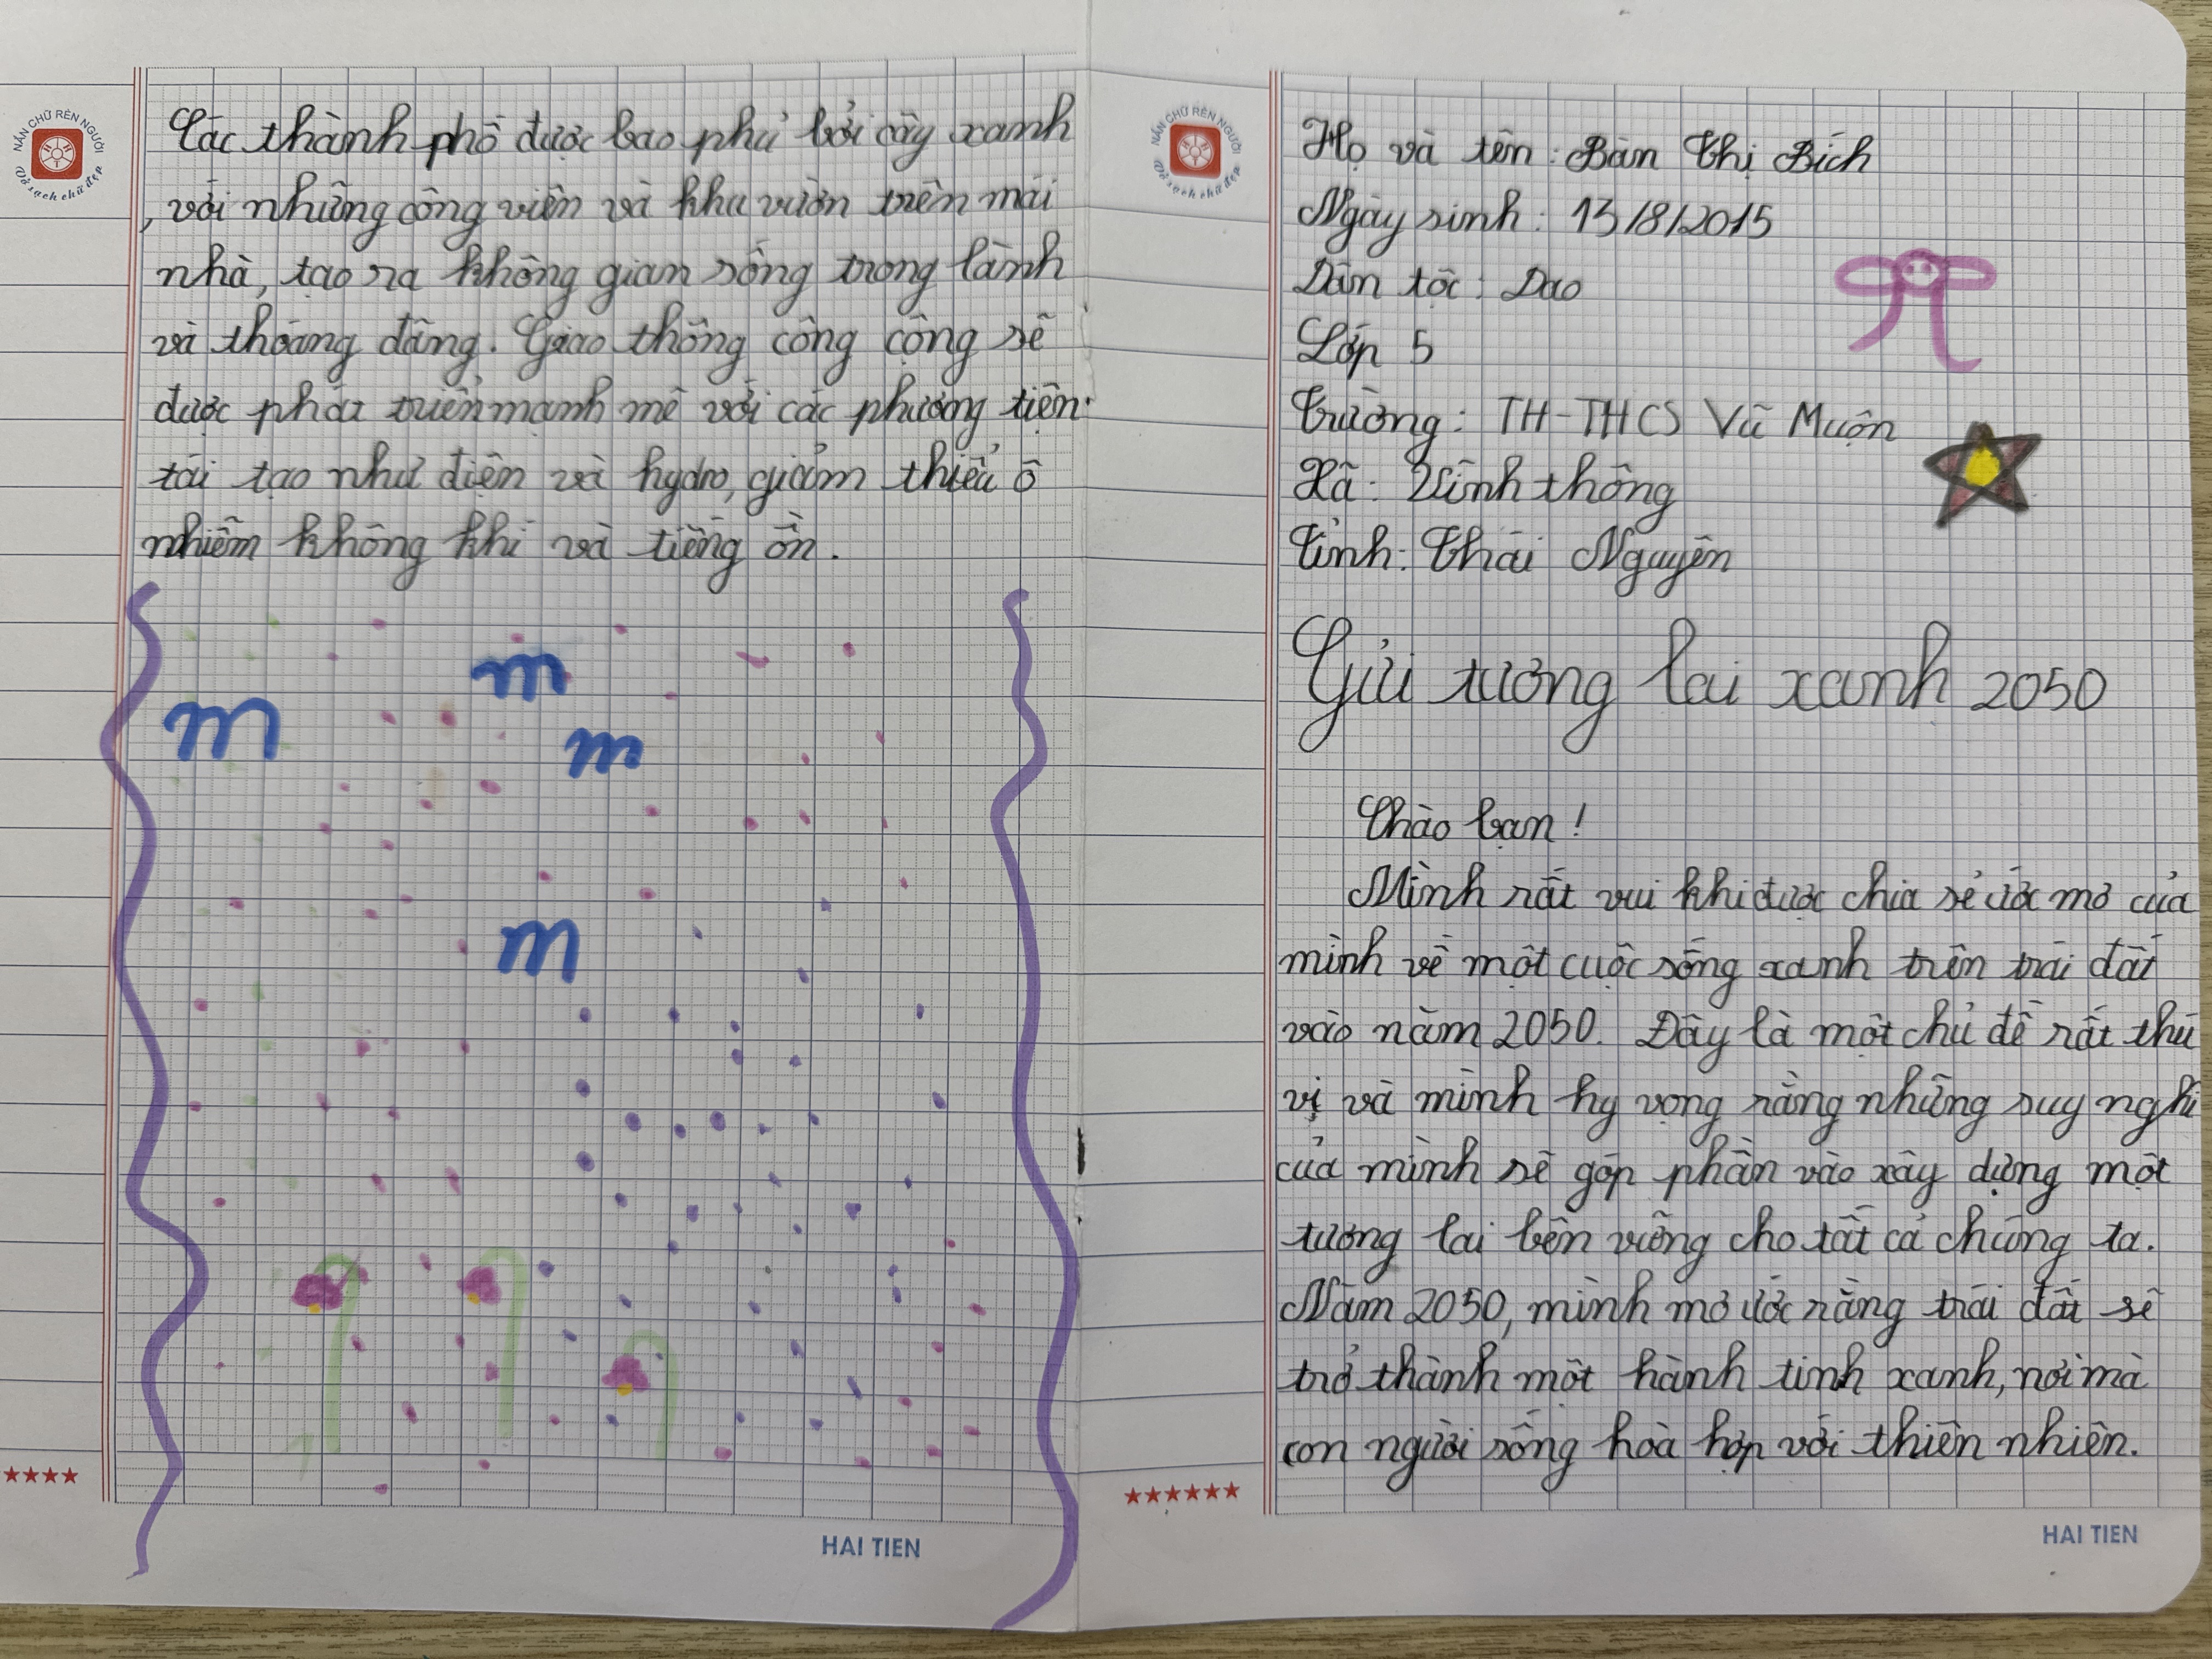 Họ và tên: Bàn Thị Bích
Ngày sinh: 13/8/2015
Dân tộc: Dao
Lớp 5
Trường: TH-THCS Vũ Muộn
Xã: Vĩnh thông
Tỉnh: Thái Nguyên
Gửi tương lai xanh 2050
Chào bạn!
Mình rất vui khi được chia sẻ ước mơ của
mình về một cuộc sống xanh trên trái đất
vào năm 2050. Đây là một chủ đề rất thú
vị và mình hy vọng rằng những suy nghĩ
của mình sẽ góp phần vào xây dựng một
tương lai bền vững cho tất cả chúng ta.
Năm 2050, mình mơ ước rằng trái đất sẽ
trở thành một hành tinh xanh, nơi mà
con người sống hoà hợp với thiên nhiên.
HAI TIEN
NẮN CHỮ RÈN NGƯỜI
Vở sạch chữ đẹp
Các thành phố được bao phủ bởi cây xanh
, với những công viên và khu vườn trên mái
nhà, tạo ra không gian sống trong lành
và thoáng đãng. Giao thông công cộng sẽ
được phát triển mạnh mẽ với các phương tiện
tái tạo như điện và hydro, giảm thiểu ô
nhiễm không khí và tiếng ồn.
m
m
m
m
HAI TIEN
NẮN CHỮ RÈN NGƯỜI
Vở sạch chữ đẹp